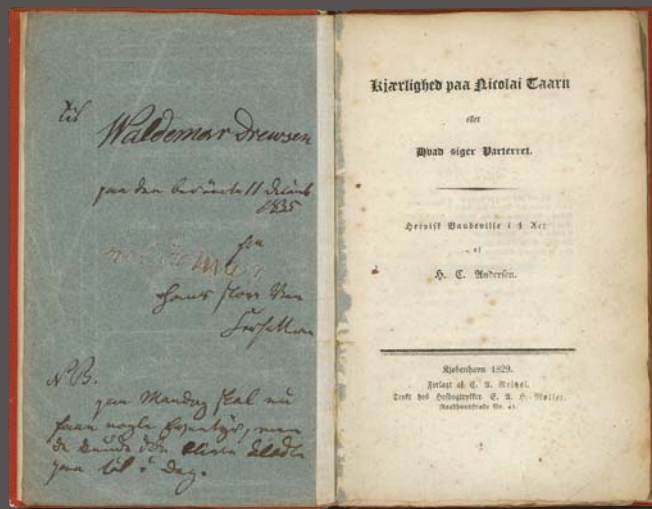 Til
Waldemar Drewsen
paa den berömte 11 Decemb
1835
fra
hans store Ven
Forfatteren
NB.
paa Mandag skal nu
faae nogle Eventyr, men
de kunde ikke blive
til i Dag.
Kjærlighed paa Nicolai Taarn
eller
Hvad siger Parterret.
Heroisk Vaudeville i 1 Act
af
H. C. Andersen.
Kjøbenhavn 1829.
Forlagt af C. A. Reitzel.
Trykt hos Hofbogtrykker C. A. H. Møller.
Raadhuusstræde No.